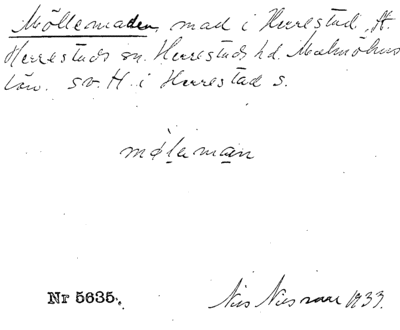 Möllemaden, mad i Herrestad, St.
Herrestads sn. Herrestads hd. Malmöhus
län. sv. H. i Herrestad s.
møləman
Nr 5635.
Nils Nilsson 1933.